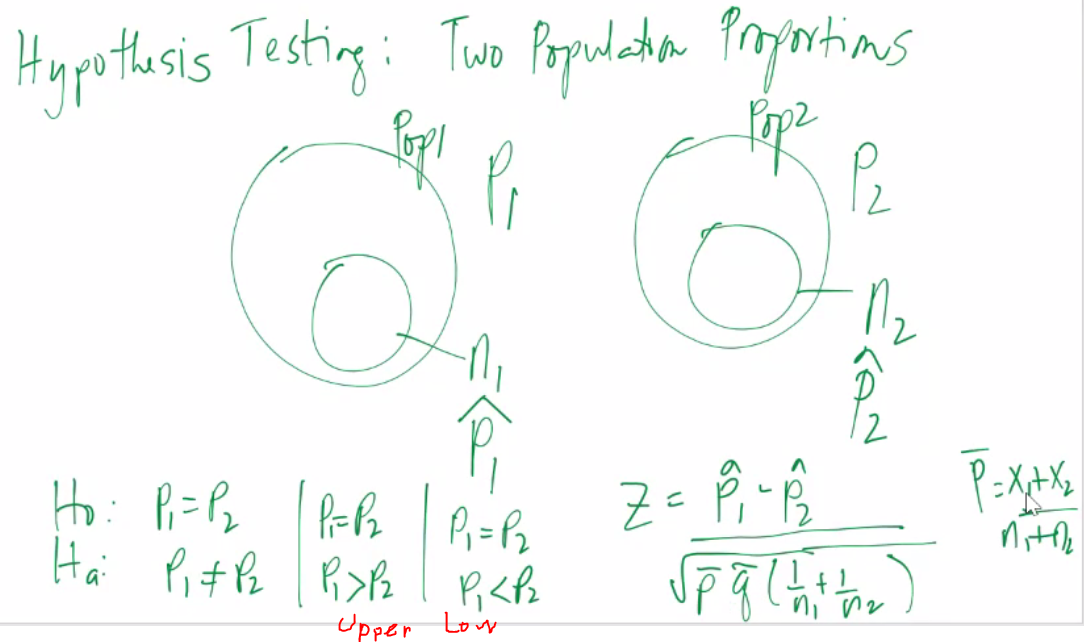 Hypothesis Testing: Two Population Proportions
Pop1
P₁
Pop2
P₂
n₁
p̂₁
n₂
p̂₂
H₀: P₁=P₂ | P₁=P₂ | P₁=P₂
Hₐ: P₁≠P₂ | P₁>P₂ | P₁<P₂
Upper Low
Z = p̂₁-p̂₂ / √p̄ q̄ (1/n₁+1/n₂)
p̄ = x₁+x₂ / n₁+n₂